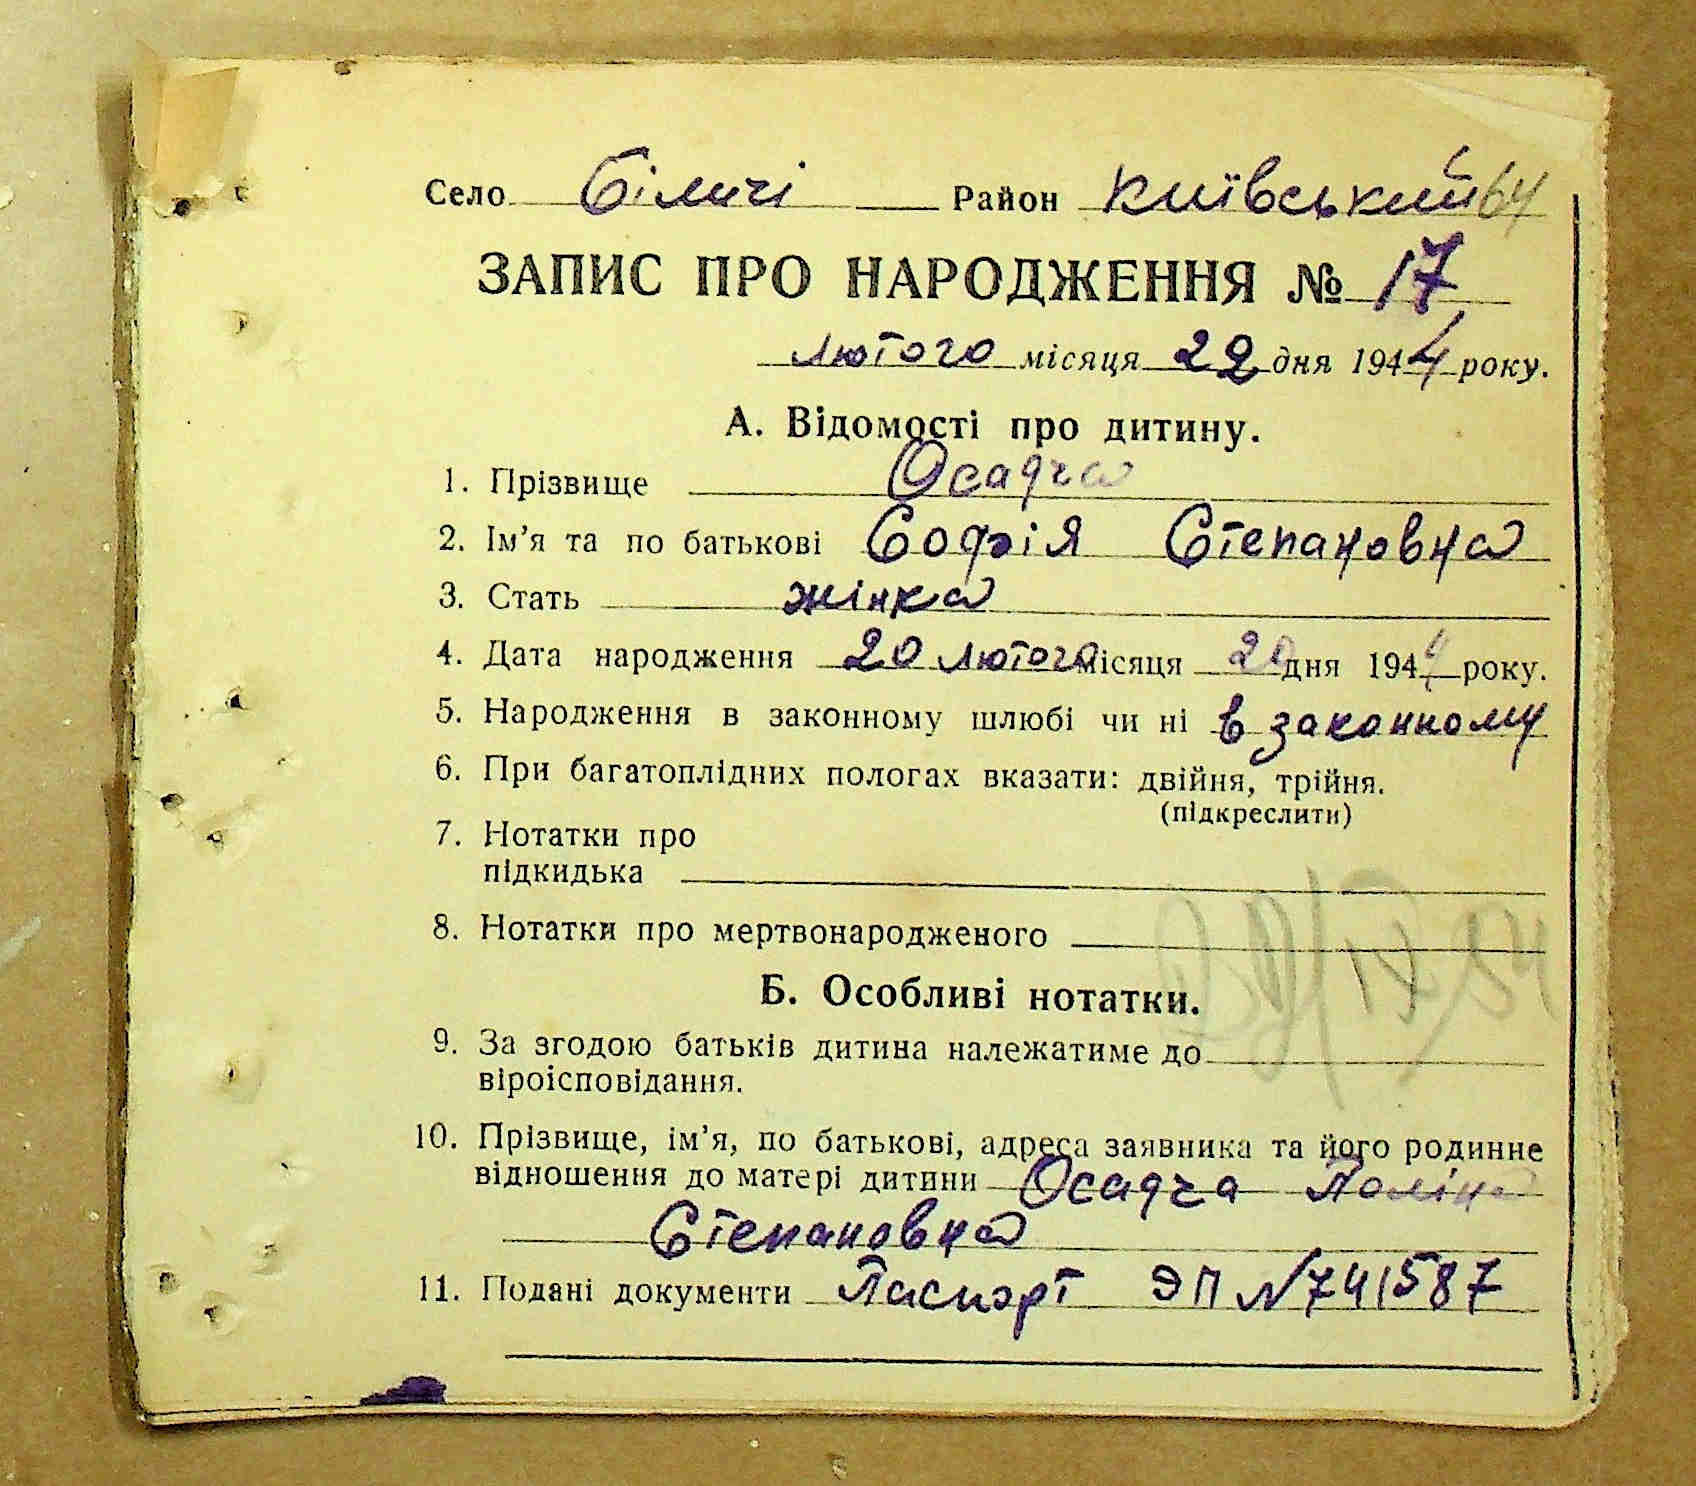 Село Біличі Район Київський 64
ЗАПИС ПРО НАРОДЖЕННЯ № 17
лютого місяця 22 дня 1944 року.
А. Відомості про дитину.
1. Прізвище Осадча
2. Ім’я та по батькові Софія Степановна
3. Стать жінка
4. Дата народження 20 лютого місяця 20 дня 1944 року.
5. Народження в законному шлюбі чи ні в законному
6. При багатоплідних пологах вказати: двійня, трійня.
(підкреслити)
7. Нотатки про
підкидька
8. Нотатки про мертвонародженого
Б. Особливі нотатки.
9. За згодою батьків дитина належатиме до
віроісповідання.
10. Прізвище, ім’я, по батькові, адреса заявника та його родинне
відношення до матері дитини Осадча Поліна
Степановна
11. Подані документи Паспорт ЭП №741587